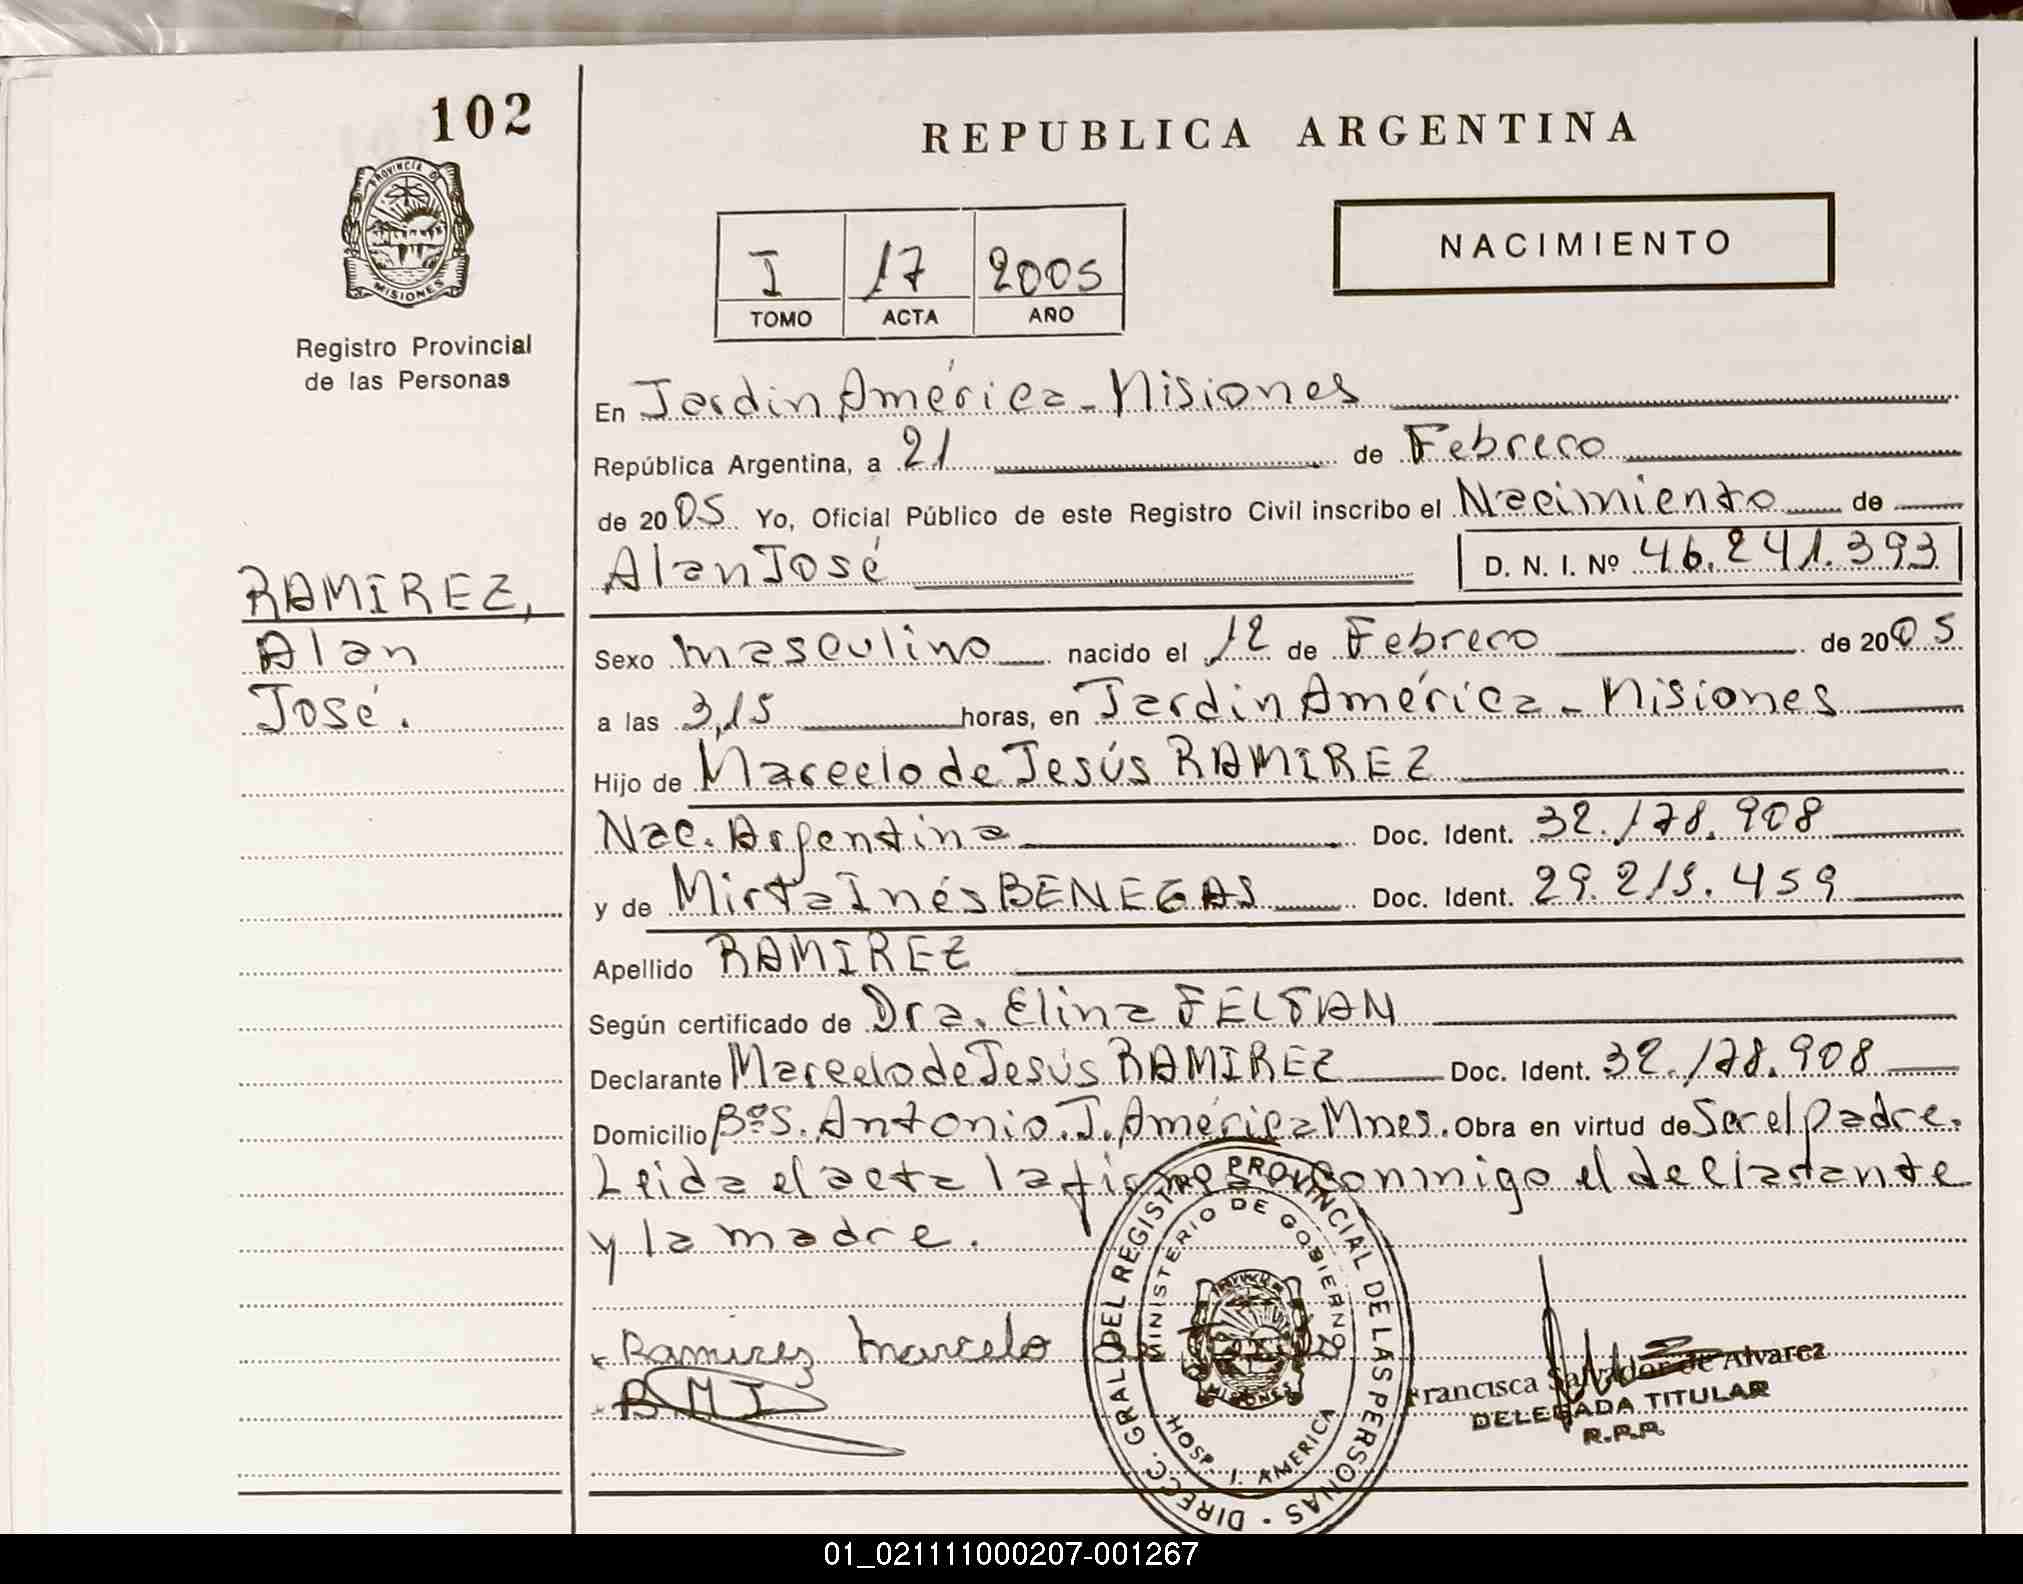 102
PROVINCIA DE
MISIONES
Registro Provincial
de las Personas
RAMIREZ,
Alan
José.
REPUBLICA ARGENTINA
NACIMIENTO
I 17 2005
TOMO ACTA AÑO
En Jardin América - Misiones
República Argentina, a 21 de Febrero
de 2005 Yo, Oficial Público de este Registro Civil inscribo el Nacimiento de
Alan José D. N. I. Nº 46.241.393
Sexo masculino nacido el 12 de Febrero de 2005
a las 3,15 horas, en Jardin América - Misiones
Hijo de Marcelo de Jesús RAMIREZ
Nac. Argentina Doc. Ident. 32.178.908
y de Mirta Inés BENEGAS Doc. Ident. 29.215.459
Apellido RAMIREZ
Según certificado de Dra. Elina
Declarante Marcelo de Jesús RAMIREZ Doc. Ident. 32.178.908
Domicilio Bº S. Antonio. J. América Mnes. Obra en virtud de Ser el padre.
Leida el acta la firma conmigo el declarante
y la madre.
Ramirez Marcelo
BMI
DIRECC. GRAL. DEL REGISTRO PROVINCIAL DE LAS PERSONAS
MINISTERIO DE GOBIERNO
MISIONES
HOSP. J. AMERICA
Francisca Salvador de Alvarez
DELEGADA TITULAR
R.P.P.
01_021111000207-001267